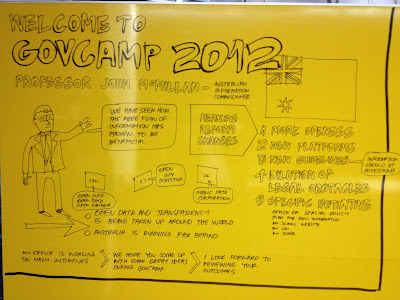 WELCOME TO
GOVCAMP 2012
PROFESSOR JOHN McMILLAN -
AUSTRALIAN
INFORMATION
COMMISSIONER
WE HAVE SEEN HOW
THE FREE FLOW OF
INFORMATION HAS
PROVEN TO BE
BENEFICIAL
REFORM
CHANGES
1 MORE OPENESS
2 NEW PLATFORMS
3 NEW GUIDELINES
4 DILUTION OF
LEGAL OBSTACLES
5 SPECIFIC INITIATIVE
INFORMATION
SHOULD BE
ACCESSIBLE
OPEN
GOV
DIRECTIVE
OPEN DATA
PUBLIC DATA
CORPORATION
OPEN DATA AND TRANSPARENCY
IS BEING TAKEN UP AROUND THE WORLD
AUSTRALIA IS RUNNING FAR BEHIND
OFFICE OF SPATIAL POLICY
PLAN FOR GOV. INFORMATION
WEBSITE
MY OFFICE IS WORKING
ON MAIN INITIATIVES
WE HOPE YOU COME UP
WITH SOME GREAT IDEAS
DURING GOVCAMP
I LOOK FORWARD TO
REVIEWING YOUR
OUTCOMES